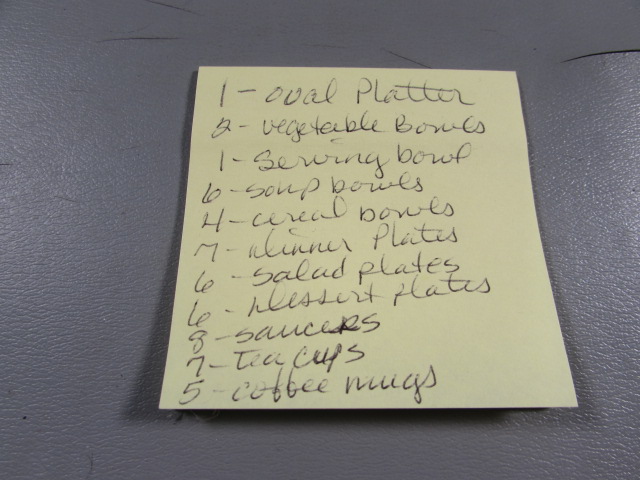 1 - oval Platter
2 - vegetable Bowls
1 - Serving bowl
6 - soup bowls
4 - cereal bowls
7 - dinner Plates
6 - Salad plates
6 - dessert plates
8 - saucers
7 - tea cups
5 - coffee mugs